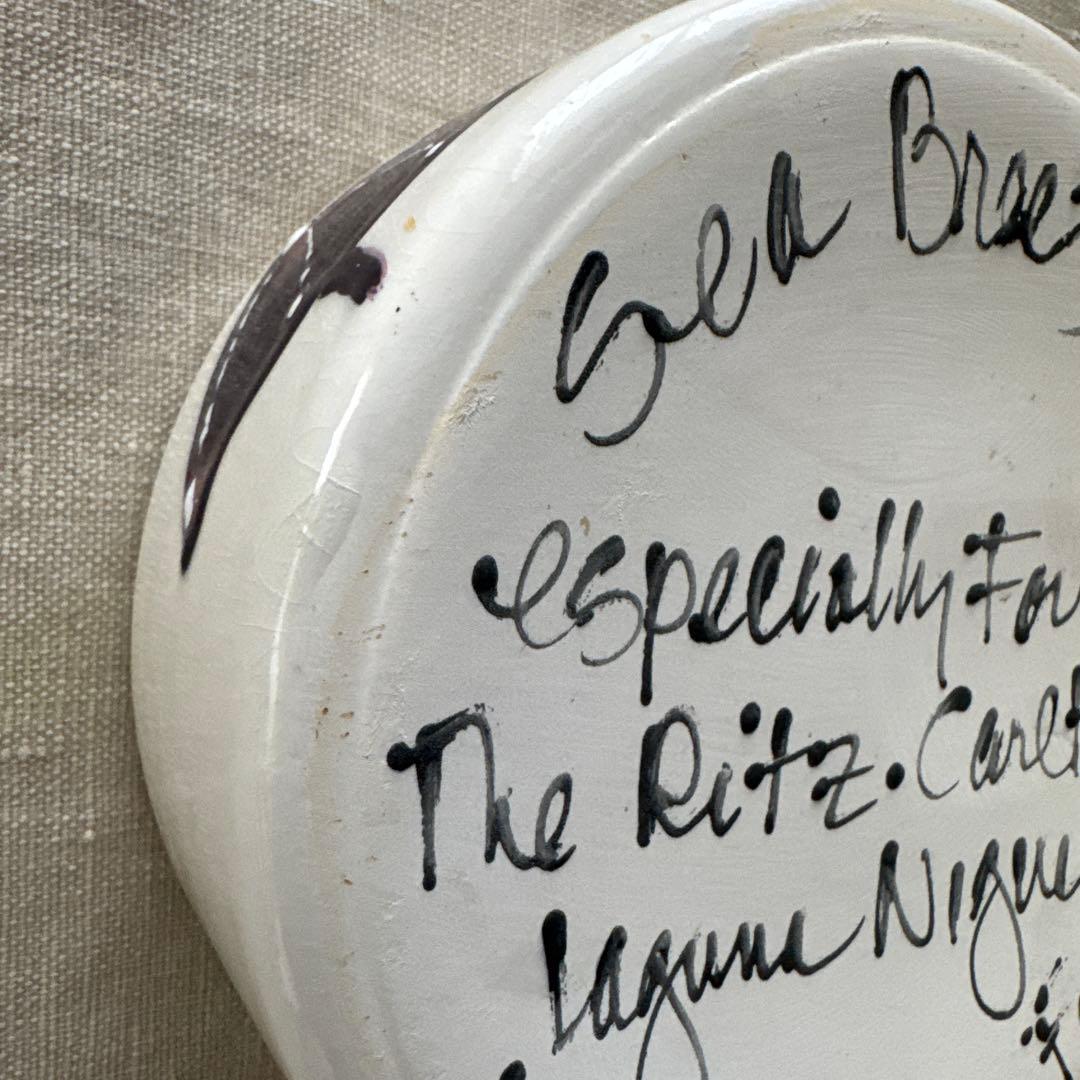 Sea Breez
especially For
The Ritz. Carlt
Laguna Nigue